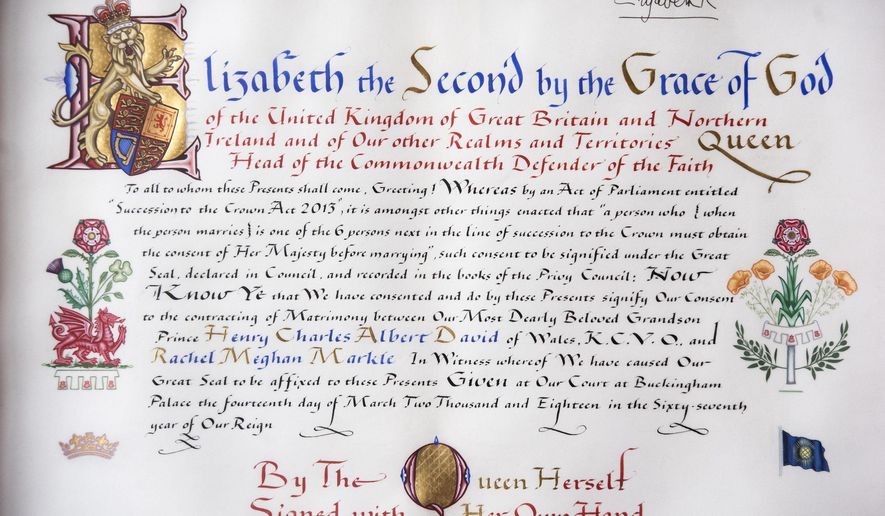 Elizabeth R
Elizabeth the Second by the Grace of God
of the United Kingdom of Great Britain and Northern
Ireland and of Our other Realms and Territories Queen
Head of the Commonwealth Defender of the Faith
To all to whom these Presents shall come, Greeting! Whereas by an Act of Parliament entitled
"Succession to the Crown Act 2013", it is amongst other things enacted that "a person who {when
the person marries} is one of the 6 persons next in the line of succession to the Crown must obtain
the consent of Her Majesty before marrying", such consent to be signified under the Great
Seal, declared in Council, and recorded in the books of the Privy Council: Now
Know Ye that We have consented and do by these Presents signify Our Consent
to the contracting of Matrimony between Our Most Dearly Beloved Grandson
Prince Henry Charles Albert David of Wales, K.C.V.O., and
Rachel Meghan Markle In Witness whereof We have caused Our
Great Seal to be affixed to these Presents Given at Our Court at Buckingham
Palace the fourteenth day of March Two Thousand and Eighteen in the Sixty-seventh
year of Our Reign
By The Queen Herself
Signed with Her Own Hand